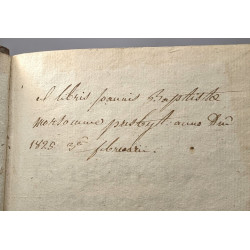 ex libris Joannis Baptistæ
presbyt. anno Dni
1825 3ª februarii.